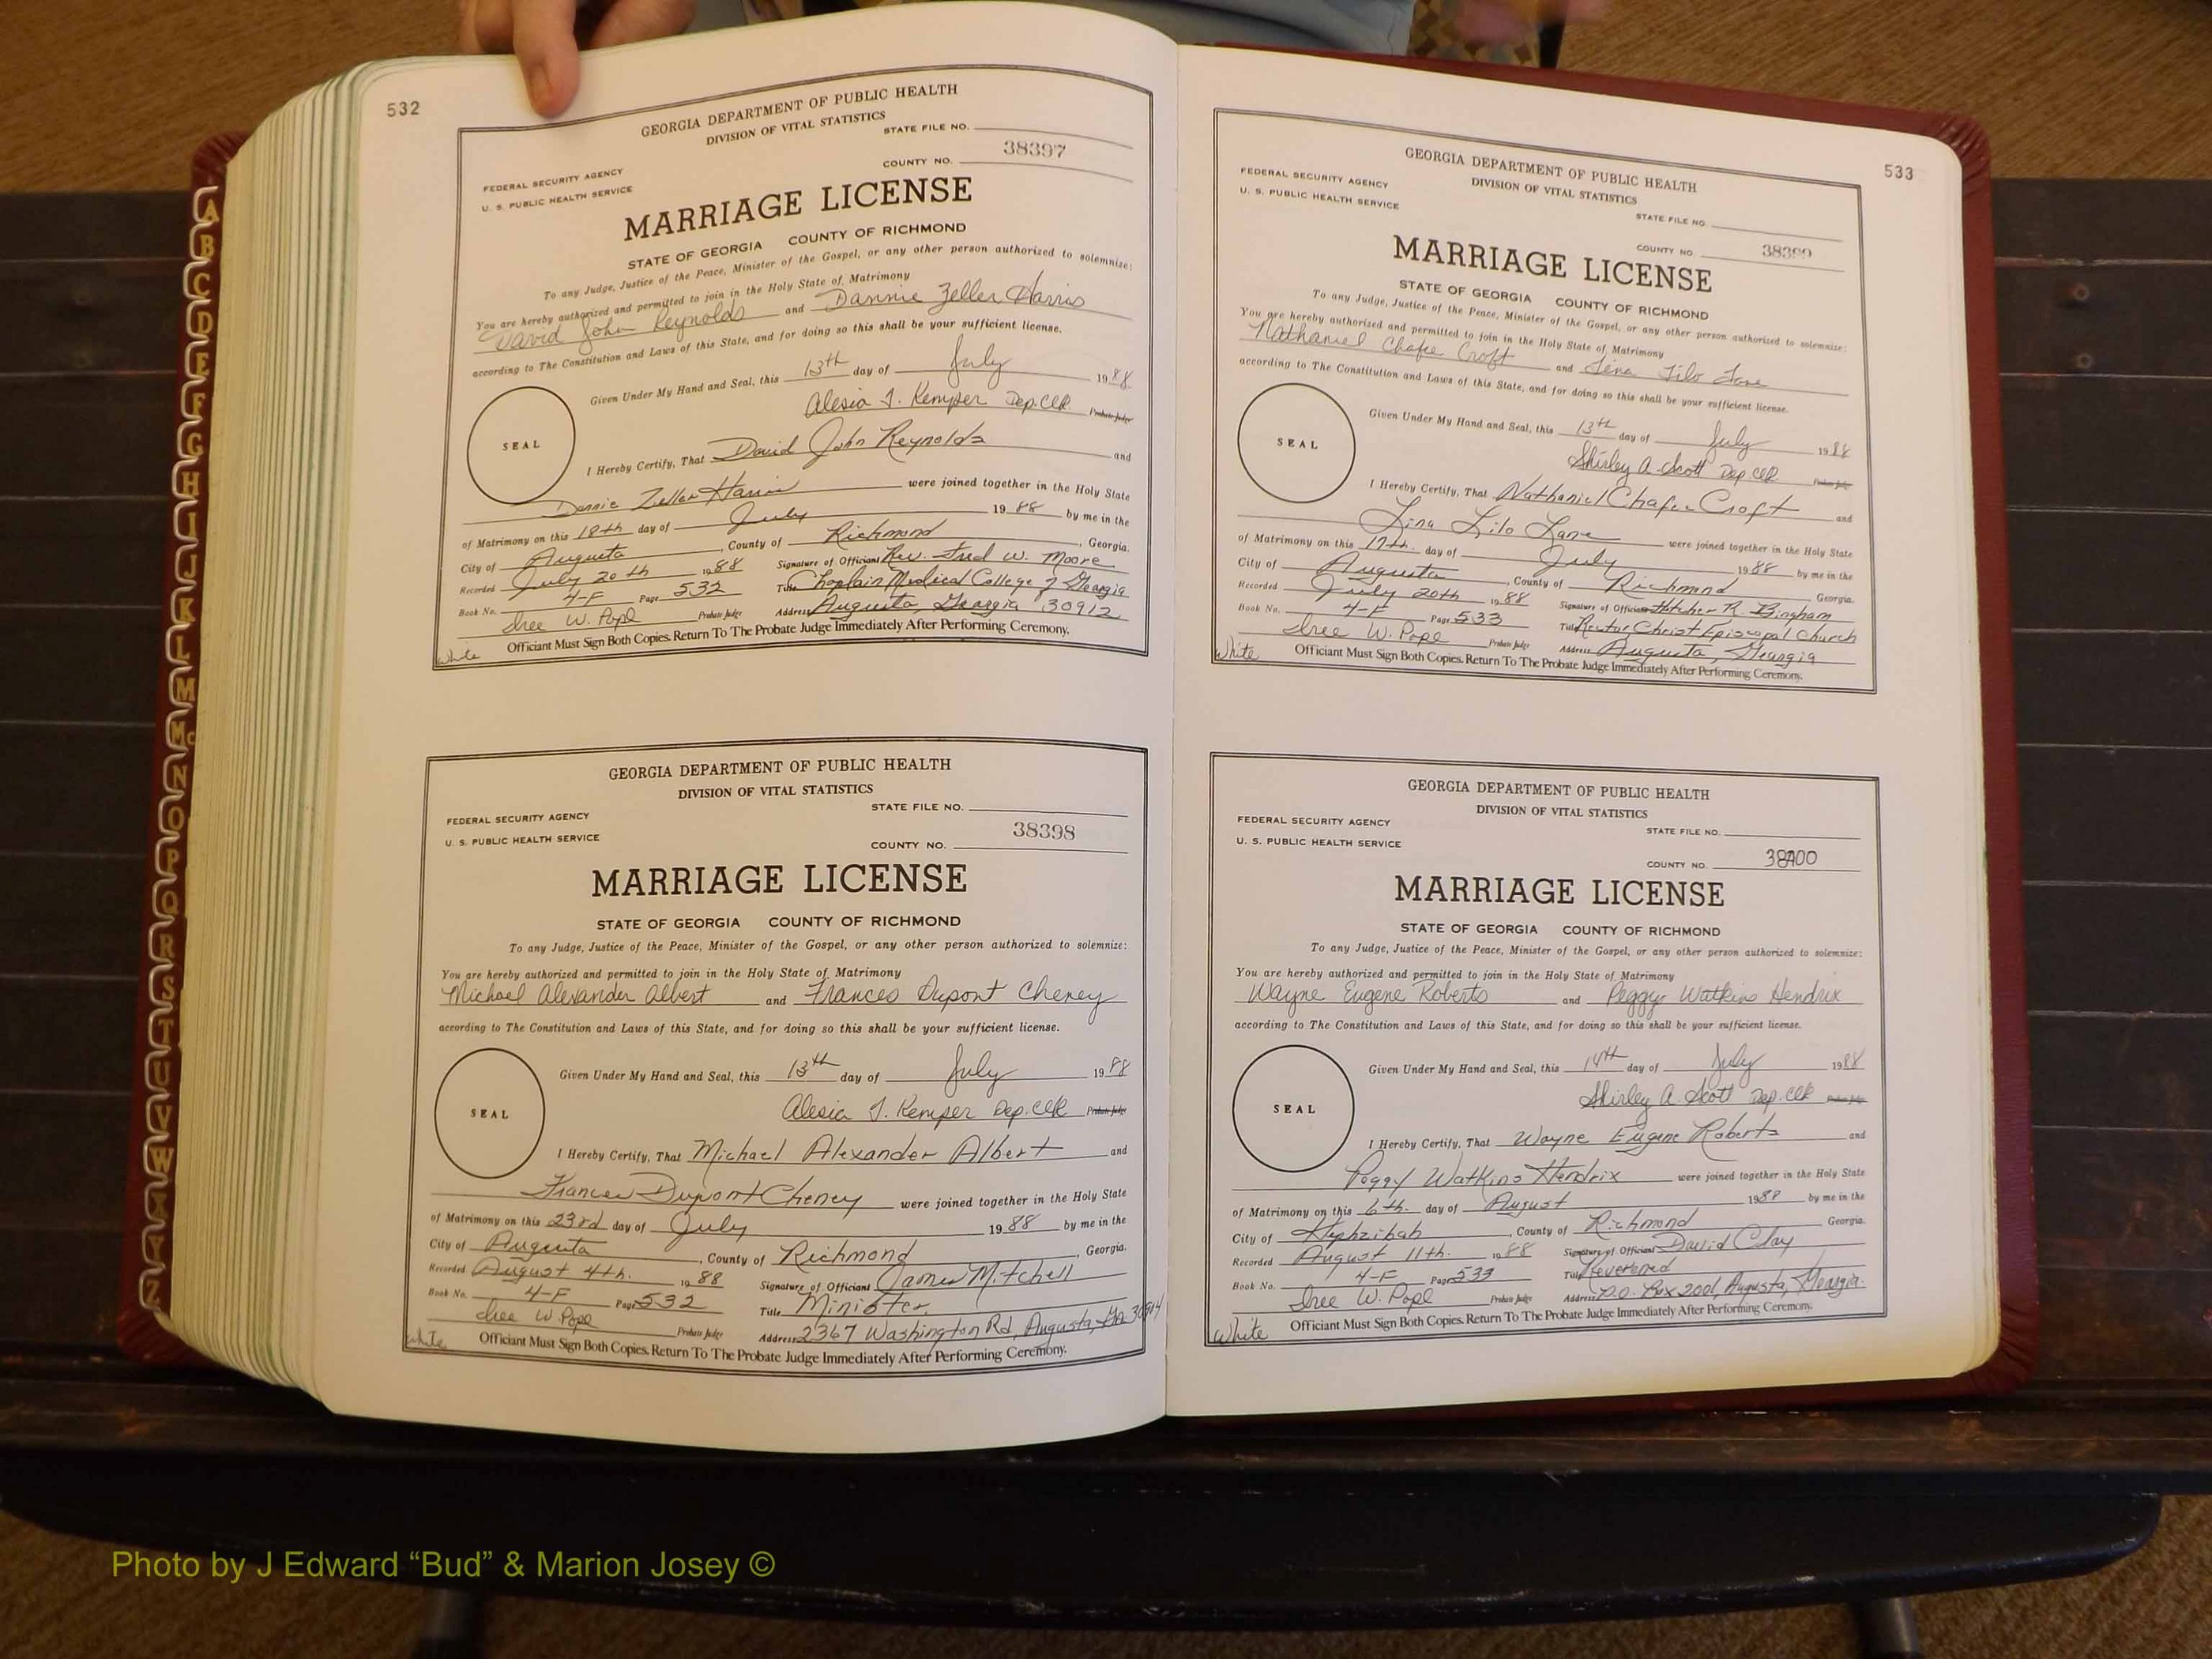 532
GEORGIA DEPARTMENT OF PUBLIC HEALTH
DIVISION OF VITAL STATISTICS
STATE FILE NO.
38397
COUNTY NO.
FEDERAL SECURITY AGENCY
U. S. PUBLIC HEALTH SERVICE
MARRIAGE LICENSE
STATE OF GEORGIA COUNTY OF RICHMOND
To any Judge, Justice of the Peace, Minister of the Gospel, or any other person authorized to solemnize:
You are hereby authorized and permitted to join in the Holy State of Matrimony
David John Reynolds and Dannie Zeller Harris
according to The Constitution and Laws of this State, and for doing so this shall be your sufficient license.
Given Under My Hand and Seal, this 13th day of July 1988
Alesia J. Kemper Dep. Clk. Probate Judge
SEAL
I Hereby Certify, That David John Reynolds and
Dannie Zeller Harris were joined together in the Holy State
of Matrimony on this 18th day of July 1988 by me in the
City of Augusta, County of Richmond, Georgia.
Recorded July 20th 1988 Signature of Official Rev. Fred W. Moore
Book No. 4-F Page 532 Title Chaplain Medical College of Georgia
W. Pope Probate Judge Address Augusta, Georgia 30912
White Officiant Must Sign Both Copies. Return To The Probate Judge Immediately After Performing Ceremony.
GEORGIA DEPARTMENT OF PUBLIC HEALTH
DIVISION OF VITAL STATISTICS
STATE FILE NO.
FEDERAL SECURITY AGENCY
38398
U. S. PUBLIC HEALTH SERVICE
COUNTY NO.
MARRIAGE LICENSE
STATE OF GEORGIA COUNTY OF RICHMOND
To any Judge, Justice of the Peace, Minister of the Gospel, or any other person authorized to solemnize:
You are hereby authorized and permitted to join in the Holy State of Matrimony
Michael Alexander Albert and Frances Dupont Cheney
according to The Constitution and Laws of this State, and for doing so this shall be your sufficient license.
Given Under My Hand and Seal, this 13th day of July 1988
Alesia J. Kemper Dep. Clk Probate Judge
SEAL
I Hereby Certify, That Michael Alexander Albert and
Frances Dupont Cheney were joined together in the Holy State
of Matrimony on this 23rd day of July 1988 by me in the
City of Augusta, County of Richmond, Georgia.
Recorded August 4th. 1988 Signature of Official James Mitchell
Book No. 4-F Page 532 Title Minister
W. Pope Probate Judge Address 2367 Washington Rd, Augusta, Ga
White Officiant Must Sign Both Copies. Return To The Probate Judge Immediately After Performing Ceremony.
533
GEORGIA DEPARTMENT OF PUBLIC HEALTH
DIVISION OF VITAL STATISTICS
FEDERAL SECURITY AGENCY
U. S. PUBLIC HEALTH SERVICE
STATE FILE NO.
COUNTY NO. 38399
MARRIAGE LICENSE
STATE OF GEORGIA COUNTY OF RICHMOND
To any Judge, Justice of the Peace, Minister of the Gospel, or any other person authorized to solemnize:
You are hereby authorized and permitted to join in the Holy State of Matrimony
Nathaniel Chafee Croft and Lina Lilo Lane
according to The Constitution and Laws of this State, and for doing so this shall be your sufficient license.
Given Under My Hand and Seal, this 13th day of July 1988
Shirley A. Scott Dep Clk Probate Judge
SEAL
I Hereby Certify, That Nathaniel Chafee Croft and
Lina Lilo Lane were joined together in the Holy State
of Matrimony on this 17th. day of July 1988 by me in the
City of Augusta, County of Richmond Georgia.
Recorded July 20th 1988 Signature of Official R. Bingham
Book No. 4-F Page 533 Title Rector, Christ Episcopal Church
W. Pope Probate Judge Address Augusta, Georgia
White Officiant Must Sign Both Copies. Return To The Probate Judge Immediately After Performing Ceremony.
GEORGIA DEPARTMENT OF PUBLIC HEALTH
DIVISION OF VITAL STATISTICS
FEDERAL SECURITY AGENCY
STATE FILE NO.
U. S. PUBLIC HEALTH SERVICE
COUNTY NO. 38400
MARRIAGE LICENSE
STATE OF GEORGIA COUNTY OF RICHMOND
To any Judge, Justice of the Peace, Minister of the Gospel, or any other person authorized to solemnize:
You are hereby authorized and permitted to join in the Holy State of Matrimony
Wayne Eugene Roberts and Peggy Watkins Hendrix
according to The Constitution and Laws of this State, and for doing so this shall be your sufficient license.
Given Under My Hand and Seal, this 14th day of July 1988
Shirley A. Scott Dep. Clk Probate Judge
SEAL
I Hereby Certify, That Wayne Eugene Roberts and
Peggy Watkins Hendrix were joined together in the Holy State
of Matrimony on this 6th. day of August 1988 by me in the
City of Hephzibah, County of Richmond Georgia.
Recorded August 11th. 1988 Signature of Official David Clay
Book No. 4-F Page 533 Title Reverened
W. Pope Probate Judge Address P.O. Box 2001, Augusta, Georgia.
White Officiant Must Sign Both Copies. Return To The Probate Judge Immediately After Performing Ceremony.
A
B
C
D
E
F
G
H
I
J
K
L
M
Mc
N
O
P
Q
R
S
T
U
V
W
X
Y
Z
Photo by J Edward “Bud” & Marion Josey ©